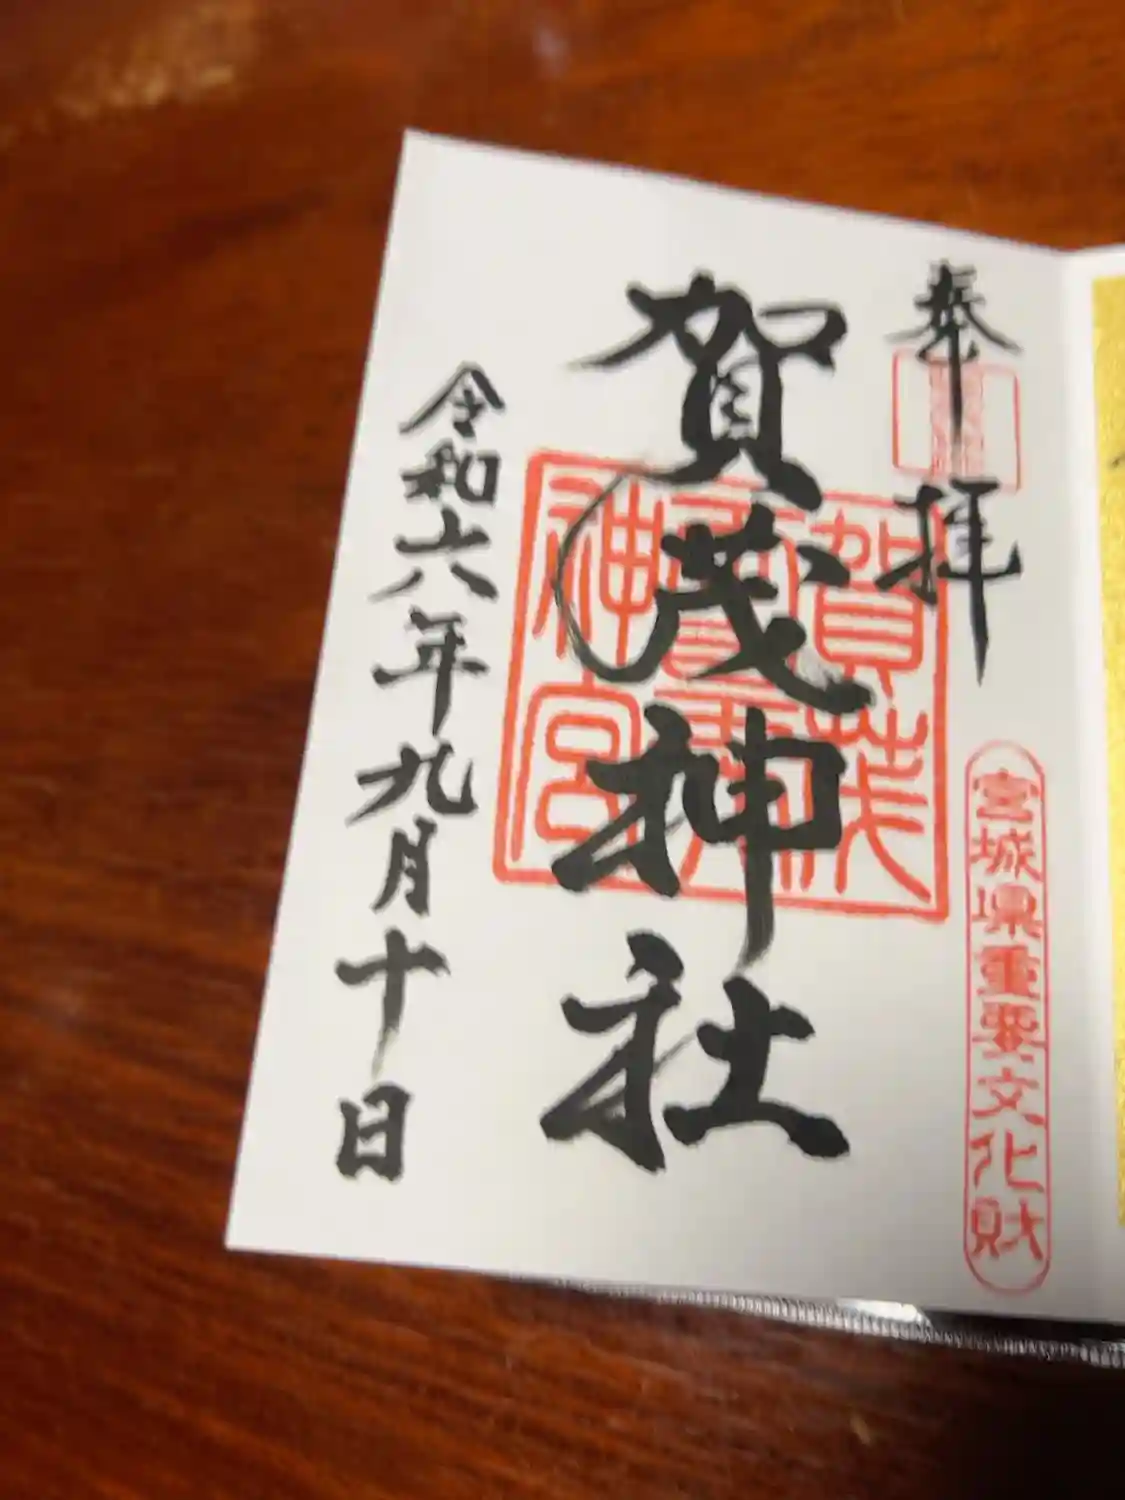 奉拝
宮城県重要文化財
賀茂神社
賀茂
神宮
令和六年九月十日